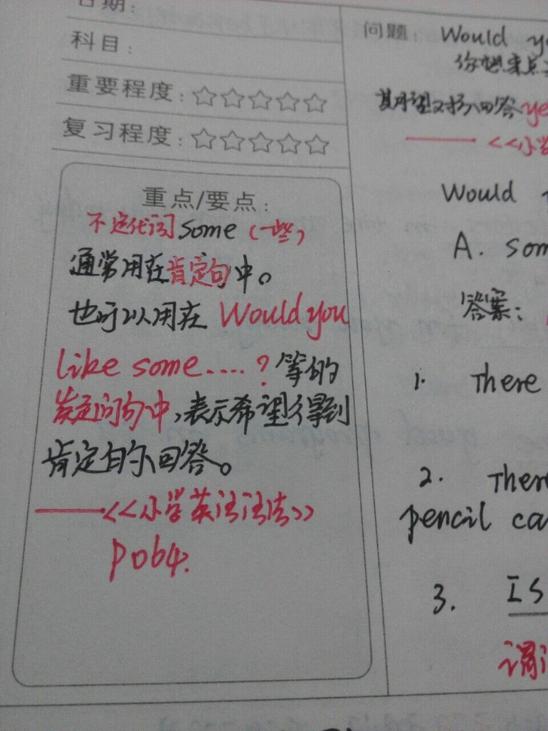 日期：
科目：
重要程度：☆☆☆☆☆
复习程度：☆☆☆☆☆
重点/要点：
不定代词some（一些）
通常用在肯定句中。
也可以用在 Would you
like some....？等的
疑问句中，表示希望得到
肯定的回答。
——<<小学英语语法>>
P064.
问题：Would
你想来点
期望对方回答ye
——<<小学
Would
A. som
答案：
1. There
2. There
pencil ca
3. Is